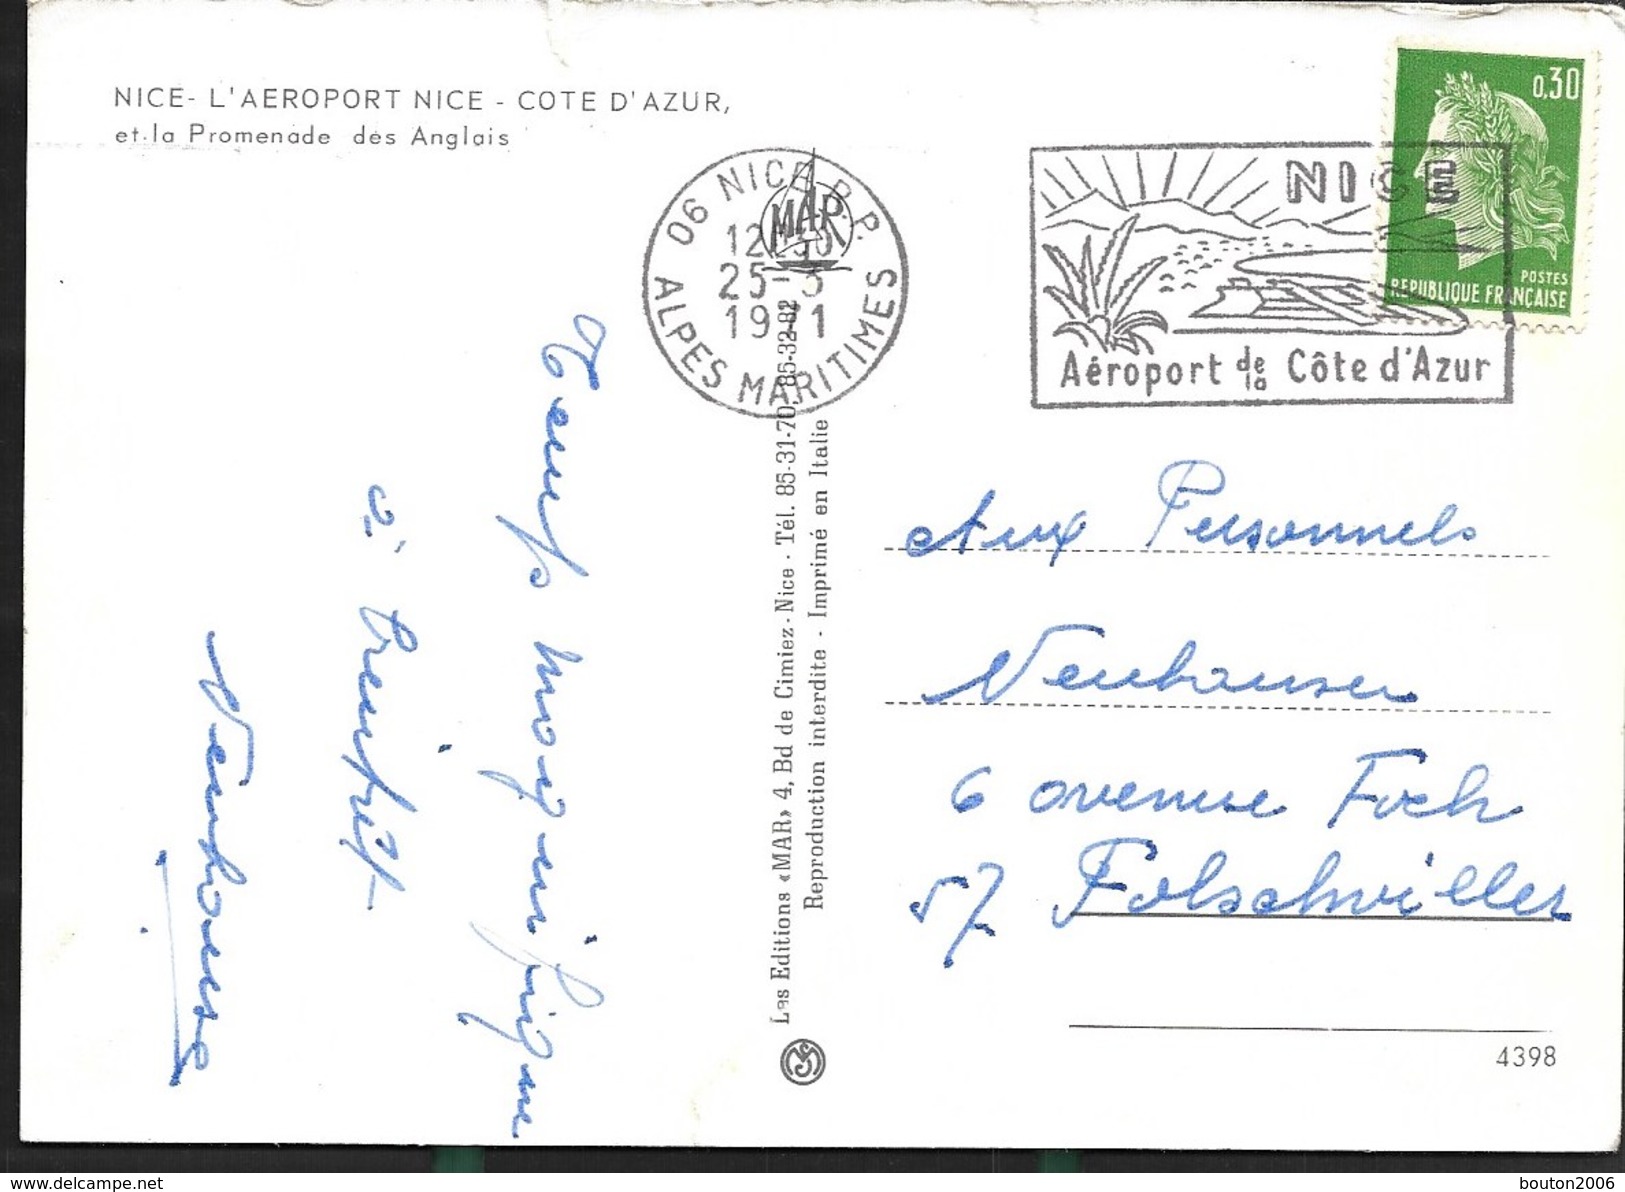 NICE- L'AEROPORT NICE - COTE D'AZUR,
et la Promenade des Anglais
06 NICE R.P.
12 30
25-3
1971
ALPES MARITIMES
MAR
NICE
Aéroport de la Côte d'Azur
0,30
POSTES
REPUBLIQUE FRANÇAISE
Temps magnifique
à bientôt
Neuhauser
Les Editions «MAR» 4, Bd de Cimiez - Nice - Tél. 85-31-70, 85-32-82
Reproduction interdite - Imprimé en Italie
Aux Personnels
Neuhauser
6 avenue Foch
57 Folschviller
4398
delcampe.net
bouton2006